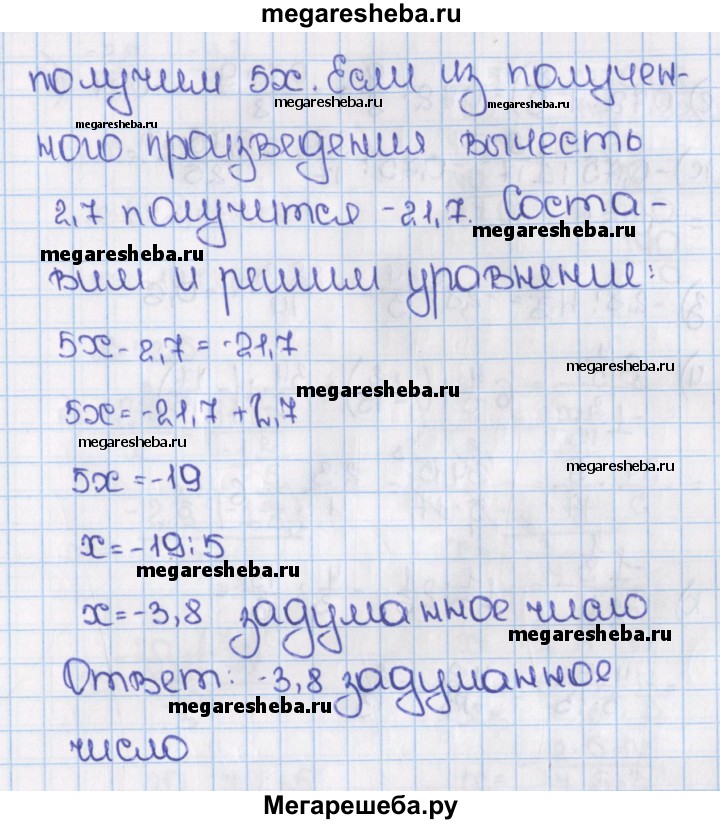 megaresheba.ru
получим 5x. Если из получен-
megaresheba.ru
megaresheba.ru
megaresheba.ru
ного произведения вычесть
2,7 получится -21,7. Соста-
megaresheba.ru
megaresheba.ru
вим и решим уравнение:
5x - 2,7 = -21,7
megaresheba.ru
megaresheba.ru
5x = -21,7 + 2,7
megaresheba.ru
megaresheba.ru
5x = -19
x = -19 : 5
megaresheba.ru
x = -3,8 задуманное число
megaresheba.ru
Ответ: -3,8 задуманное
megaresheba.ru
число
Мегарешеба.ру